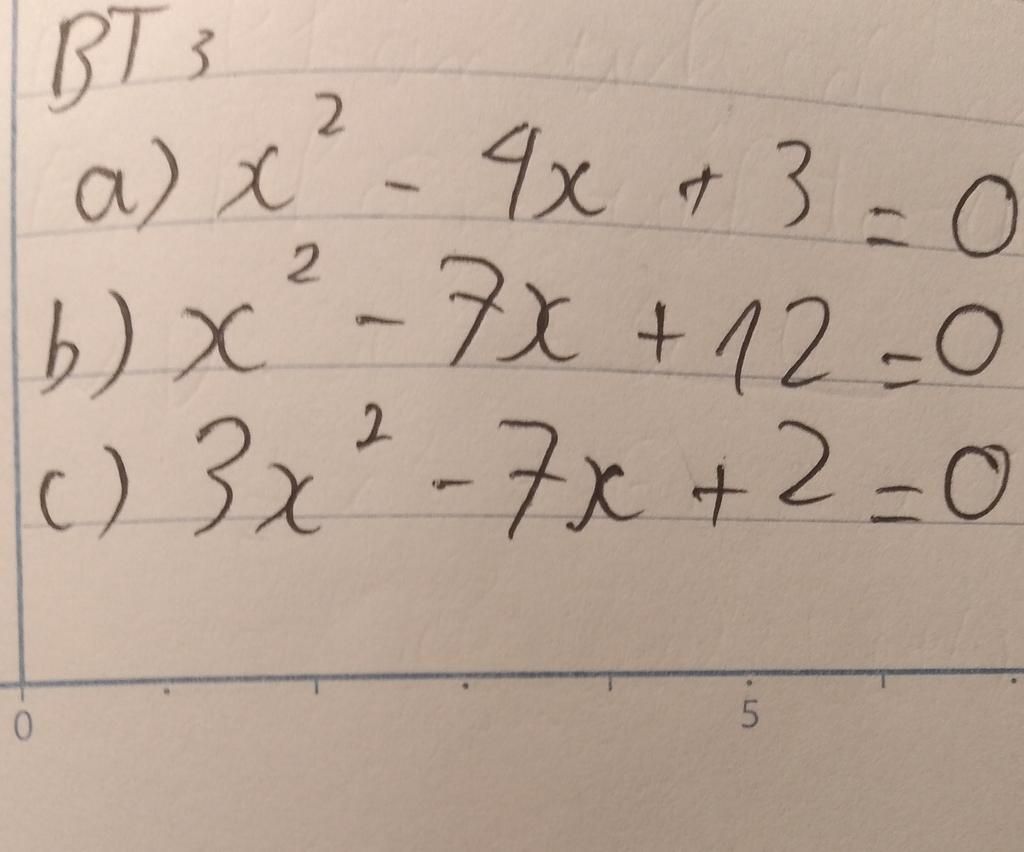 BT 3
a) x² - 4x + 3 = 0
b) x² - 7x + 12 = 0
c) 3x² - 7x + 2 = 0
0 5